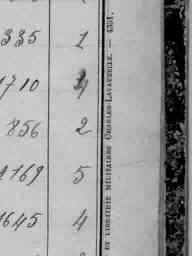 335 1
1710 4
856 2
1169 5
1645 4
ET LIBRAIRIE MILITAIRES CHARLES-LAVAUZELLE. — 4351.